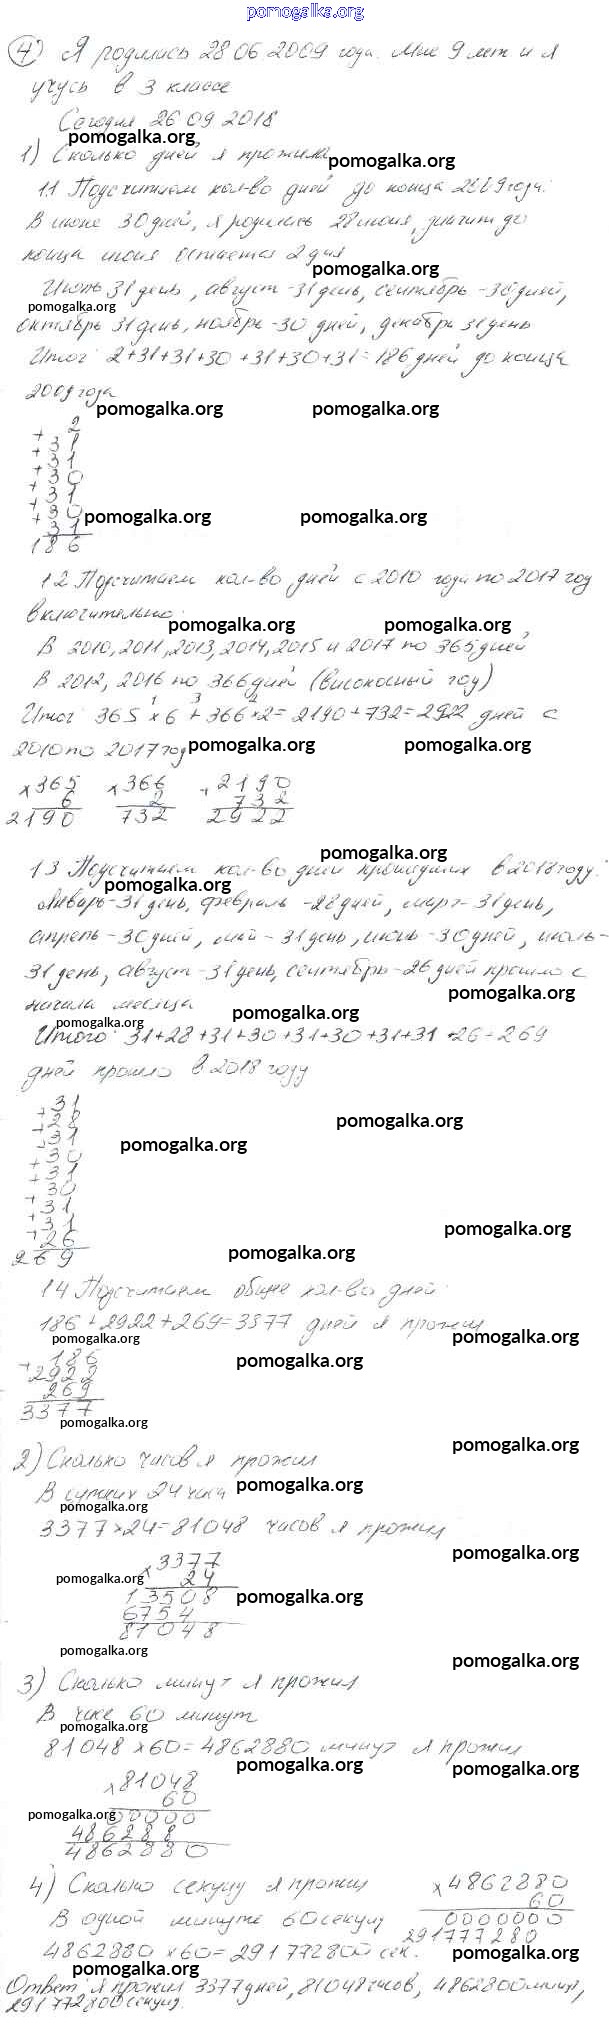 pomogalka.org
4) Я родилась 28 06 2009 года. Мне 9 лет и я
учусь в 3 классе
Сегодня 26 09 2018
pomogalka.org
1) Сколько дней я прожила
pomogalka.org
1.1 Подсчитаем кол-во дней до конца 2009 года:
В июне 30 дней, я родилась 28 июня, значит до
конца июня остается 2 дня
pomogalka.org
Июль 31 день, август - 31 день, сентябрь - 30 дней,
pomogalka.org
октябрь 31 день, ноябрь - 30 дней, декабрь 31 день
Итог: 2+31+31+30+31+30+31=186 дней до конца
2009 года
pomogalka.org pomogalka.org
2
+ 31
+ 31
+ 30
+ 31
+ 30
+ 31
pomogalka.org pomogalka.org
186
1.2 Подсчитаем кол-во дней с 2010 года по 2017 год
включительно:
pomogalka.org pomogalka.org
В 2010, 2011, 2013, 2014, 2015 и 2017 по 365 дней
В 2012, 2016 по 366 дней (високосный год)
1 3 2
Итог: 365 x 6 + 366 x 2 = 2190 + 732 = 2922 дней с
2010 по 2017 год
pomogalka.org pomogalka.org
x 365 x 366 + 2190
6 2 732
2190 732 2922
pomogalka.org
1.3 Подсчитаем кол-во дней прошедших в 2018 году:
pomogalka.org
Январь - 31 день, февраль - 28 дней, март - 31 день,
апрель - 30 дней, май - 31 день, июнь - 30 дней, июль -
31 день, август - 31 день, сентябрь - 26 дней прошло с
pomogalka.org
начала месяца
pomogalka.org
pomogalka.org
Итого: 31+28+31+30+31+30+31+31+26=269
дней прошло в 2018 году
+ 31
+ 28
+ 31
+ 30
+ 31
30
+ 31
+ 31
+ 26
269
pomogalka.org
pomogalka.org
pomogalka.org
pomogalka.org
1.4 Подсчитаем общее кол-во дней:
186+2922+269=3377 дней я прожил
pomogalka.org pomogalka.org
pomogalka.org
186
+ 2922
269
3377
pomogalka.org
pomogalka.org
2) Сколько часов я прожил
В сутках 24 часа
pomogalka.org
pomogalka.org
3377 x 24 = 81048 часов я прожил
pomogalka.org
x 3377
24
pomogalka.org
13508
pomogalka.org
6754
81048
pomogalka.org pomogalka.org
3) Сколько минут я прожил
В часе 60 минут
pomogalka.org
81048 x 60 = 4862880 минут я прожил
pomogalka.org pomogalka.org
x 81048
60
pomogalka.org
00000
486288
4862880
4) Сколько секунд я прожил x 4862880
60
В одной минуте 60 секунд 0000000
291777280
4862880 x 60 = 291772800 сек.
pomogalka.org
pomogalka.org
Ответ: я прожил 3377 дней, 81048 часов, 4862800 минут,
291772800 секунд.